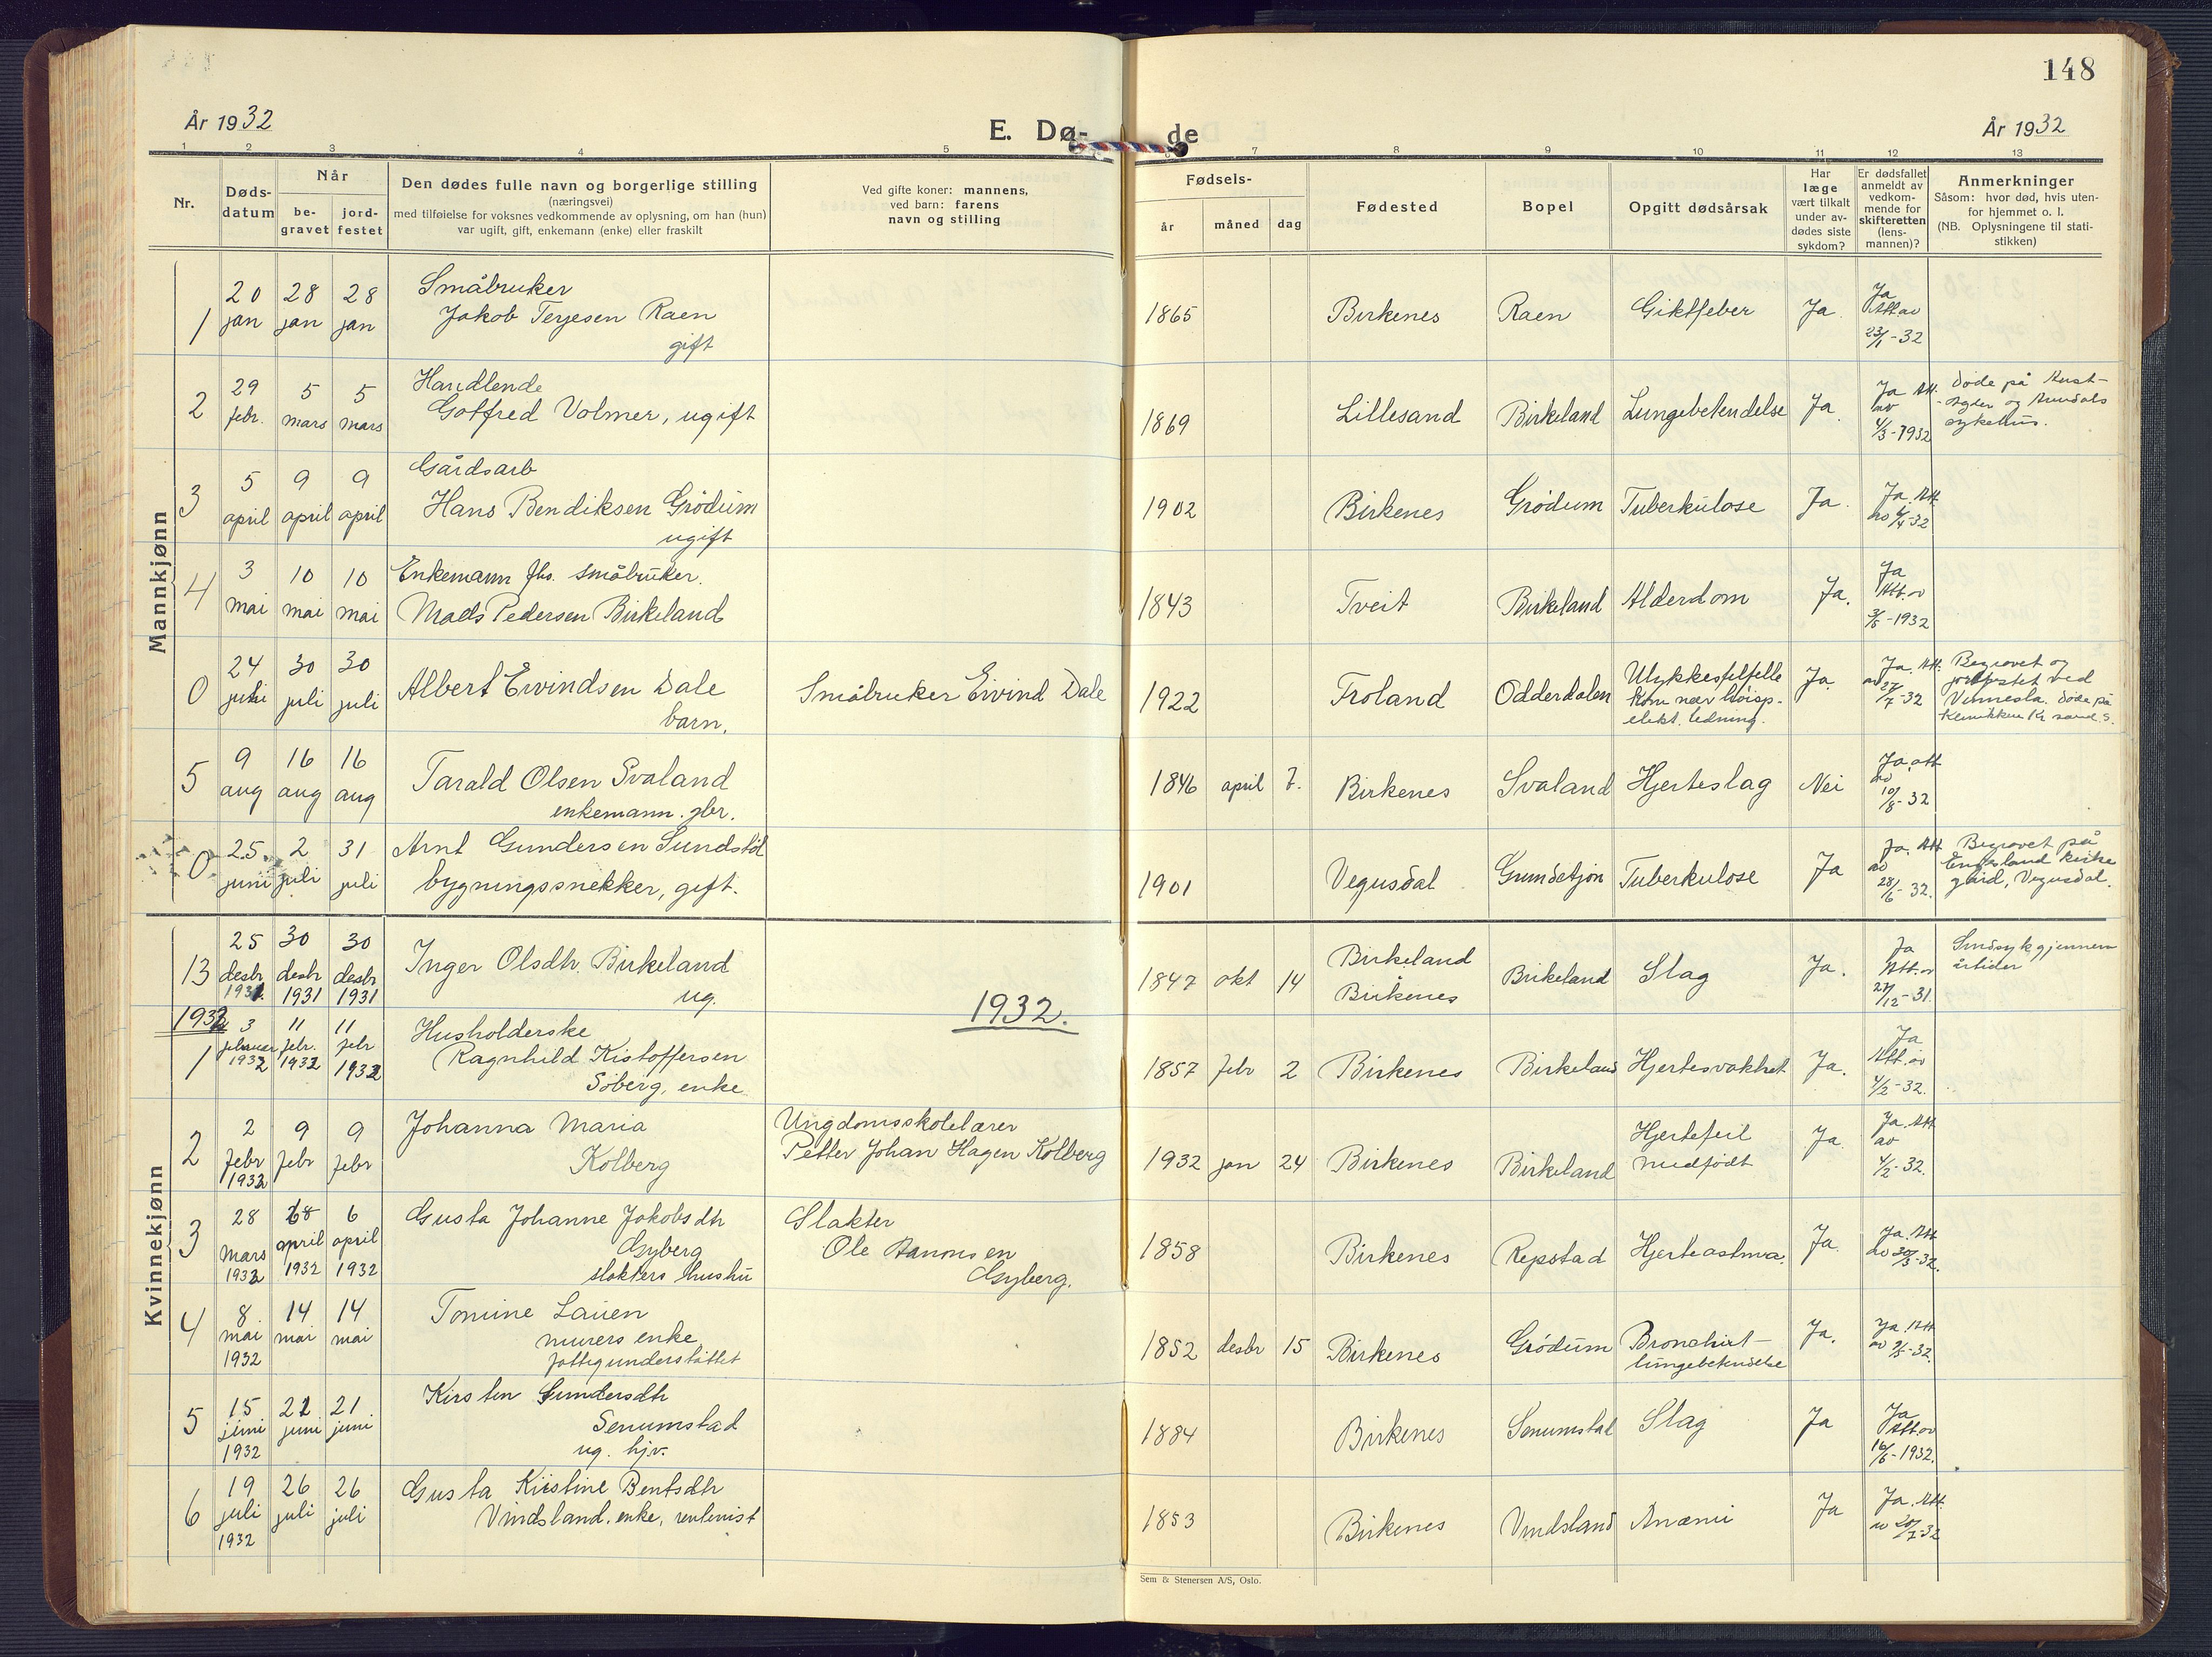 148
År 1932
E. Dø-
de
År 1932
1 2 3 4 5 6 7 8 9 10 11 12 13
Nr.
Døds-
datum
Når
be-
gravet
jord-
festet
Den dødes fulle navn og borgerlige stilling
(næringsvei)
med tilføielse for voksnes vedkommende av oplysning, om han (hun)
var ugift, gift, enkemann (enke) eller fraskilt
Ved gifte koner: mannens,
ved barn: farens
navn og stilling
Fødsels-
år måned dag
Fødested
Bopel
Opgitt dødsårsak
Har
læge
vært tilkalt
under av-
dødes siste
sykdom?
Er dødsfallet
anmeldt av
vedkom-
mende for
skifteretten
(lens-
mannen)?
Anmerkninger
Såsom: hvor død, hvis uten-
for hjemmet o. l.
(NB. Oplysningene til stati-
stikken)
Mannkjønn
1
20 jan
28 jan
28 jan
Småbruker
Jakob Terjesen Raen
gift
1865
Birkenes
Raen
Giktfeber
Ja
Ja
Att av
23/1-32
2
29 febr.
5 mars
5 mars
Handlende
Gotfred Volmer, ugift
1869
Lillesand
Birkeland
Lungebetendelse
Ja
Ja Att.
av
4/3-1932
Døde på Aust-
Agder og Arendals
sykehus.
3
5 april
9 april
9 april
Gårdsarb
Hans Bendiksen Grödum
ugift
1902
Birkenes
Grödum
Tuberkulose
Ja.
Ja. Att.
av 6/4-32
4
3 mai
10 mai
10 mai
Enkemann fhv. småbruker.
Mads Pedersen Birkeland
1843
Tveit
Birkeland
Alderdom
Ja.
Ja
Att. av
3/5-1932
0
24 juli
30 juli
30 juli
Albert Eivindsen Dale
barn.
Småbruker Eivind Dale
1922
Troland
Odderdalen
Ulykkestilfelle
Kom nær höisp.-
elekt. ledning.
Ja.
Ja. Att.
av 27/7-32
Begravet og
jordfestet ved
Vennesla. Döde på
Klinikken Kr.sand. S.
5
9 aug
16 aug
16 aug
Tarald Olsen Svaland
enkemann. gbr.
1846 april 7.
Birkenes
Svaland
Hjerteslag
Nei
Ja. att
av
10/8-32
0
25. juni
2 juli
31 juli
Arnt Gundersen Sundstöl
bygningssnekker, gift.
1901
Vegusdal
Grundetjön
Tuberkulose
Ja
Ja. Att
av
28/6-32.
Begravet på
Engesland kirke
gård, Vegusdal.
Kvinnekjønn
13
25 desbr 1931.
30 desbr 1931
30 desbr 1931
Inger Olsdtr. Birkeland
ug.
1847 okt 14
Birkeland
Birkenes
Birkeland
Slag
Ja.
Ja
Att. av
27/12-31.
Sindsyk gjennem
årtider
1932
1932.
1
3 februar 1932
11 febr. 1932
11 febr 1932
Husholderske
Ragnhild Kistoffersen
Söberg, enke
1857 febr 2
Birkenes
Birkeland
Hjertesvakhet
Ja.
Ja
Att. av
4/2-32.
2
2 febr 1932
9 febr
9 febr
Johanna Maria
Kolberg
Ungdomsskolelærer
Petter Johan Hagen Kolberg
1932 jan 24
Birkenes
Birkeland
Hjertefeil
medfödt
Ja.
Ja. Att
av
4/2-32.
3
28 Mars 1932
6 april 1932
6 april 1932
Gusta Johanne Jakobsdtr
Gyberg
slakters hustru
Slakter
Ole Aanonsen
Gyberg.
1858
Birkenes
Repstad
Hjerteastma.
Ja.
Ja. Att
av 30/3-32.
4
8. mai 1932
14 mai
14 mai
Tomine Lauen
murers enke
fattigunderstöttet
1852 desbr 15
Birkenes
Grödum
Bronchit-
lungebetendelse
Ja.
Ja. Att
av 9/5-32.
5
15 juni 1932
21 juni
21 juni
Kirsten Gundersdtr
Senumstad
ug. hjv.
1884
Birkenes
Senumstad
Slag
Ja
Ja
Att av
16/6-1932.
6
19 juli 1932
26 juli
26 juli
Gusta Kirstine Bentsdtr
Vindsland. enke, rentenist
1853
Birkenes
Vindsland
Anæmi
Ja
Ja. Att.
av 20/7-32
Sem & Stenersen A/S, Oslo.